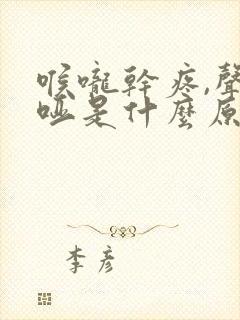 喉嚨幹疼,聲
啞是什麼原
李彥